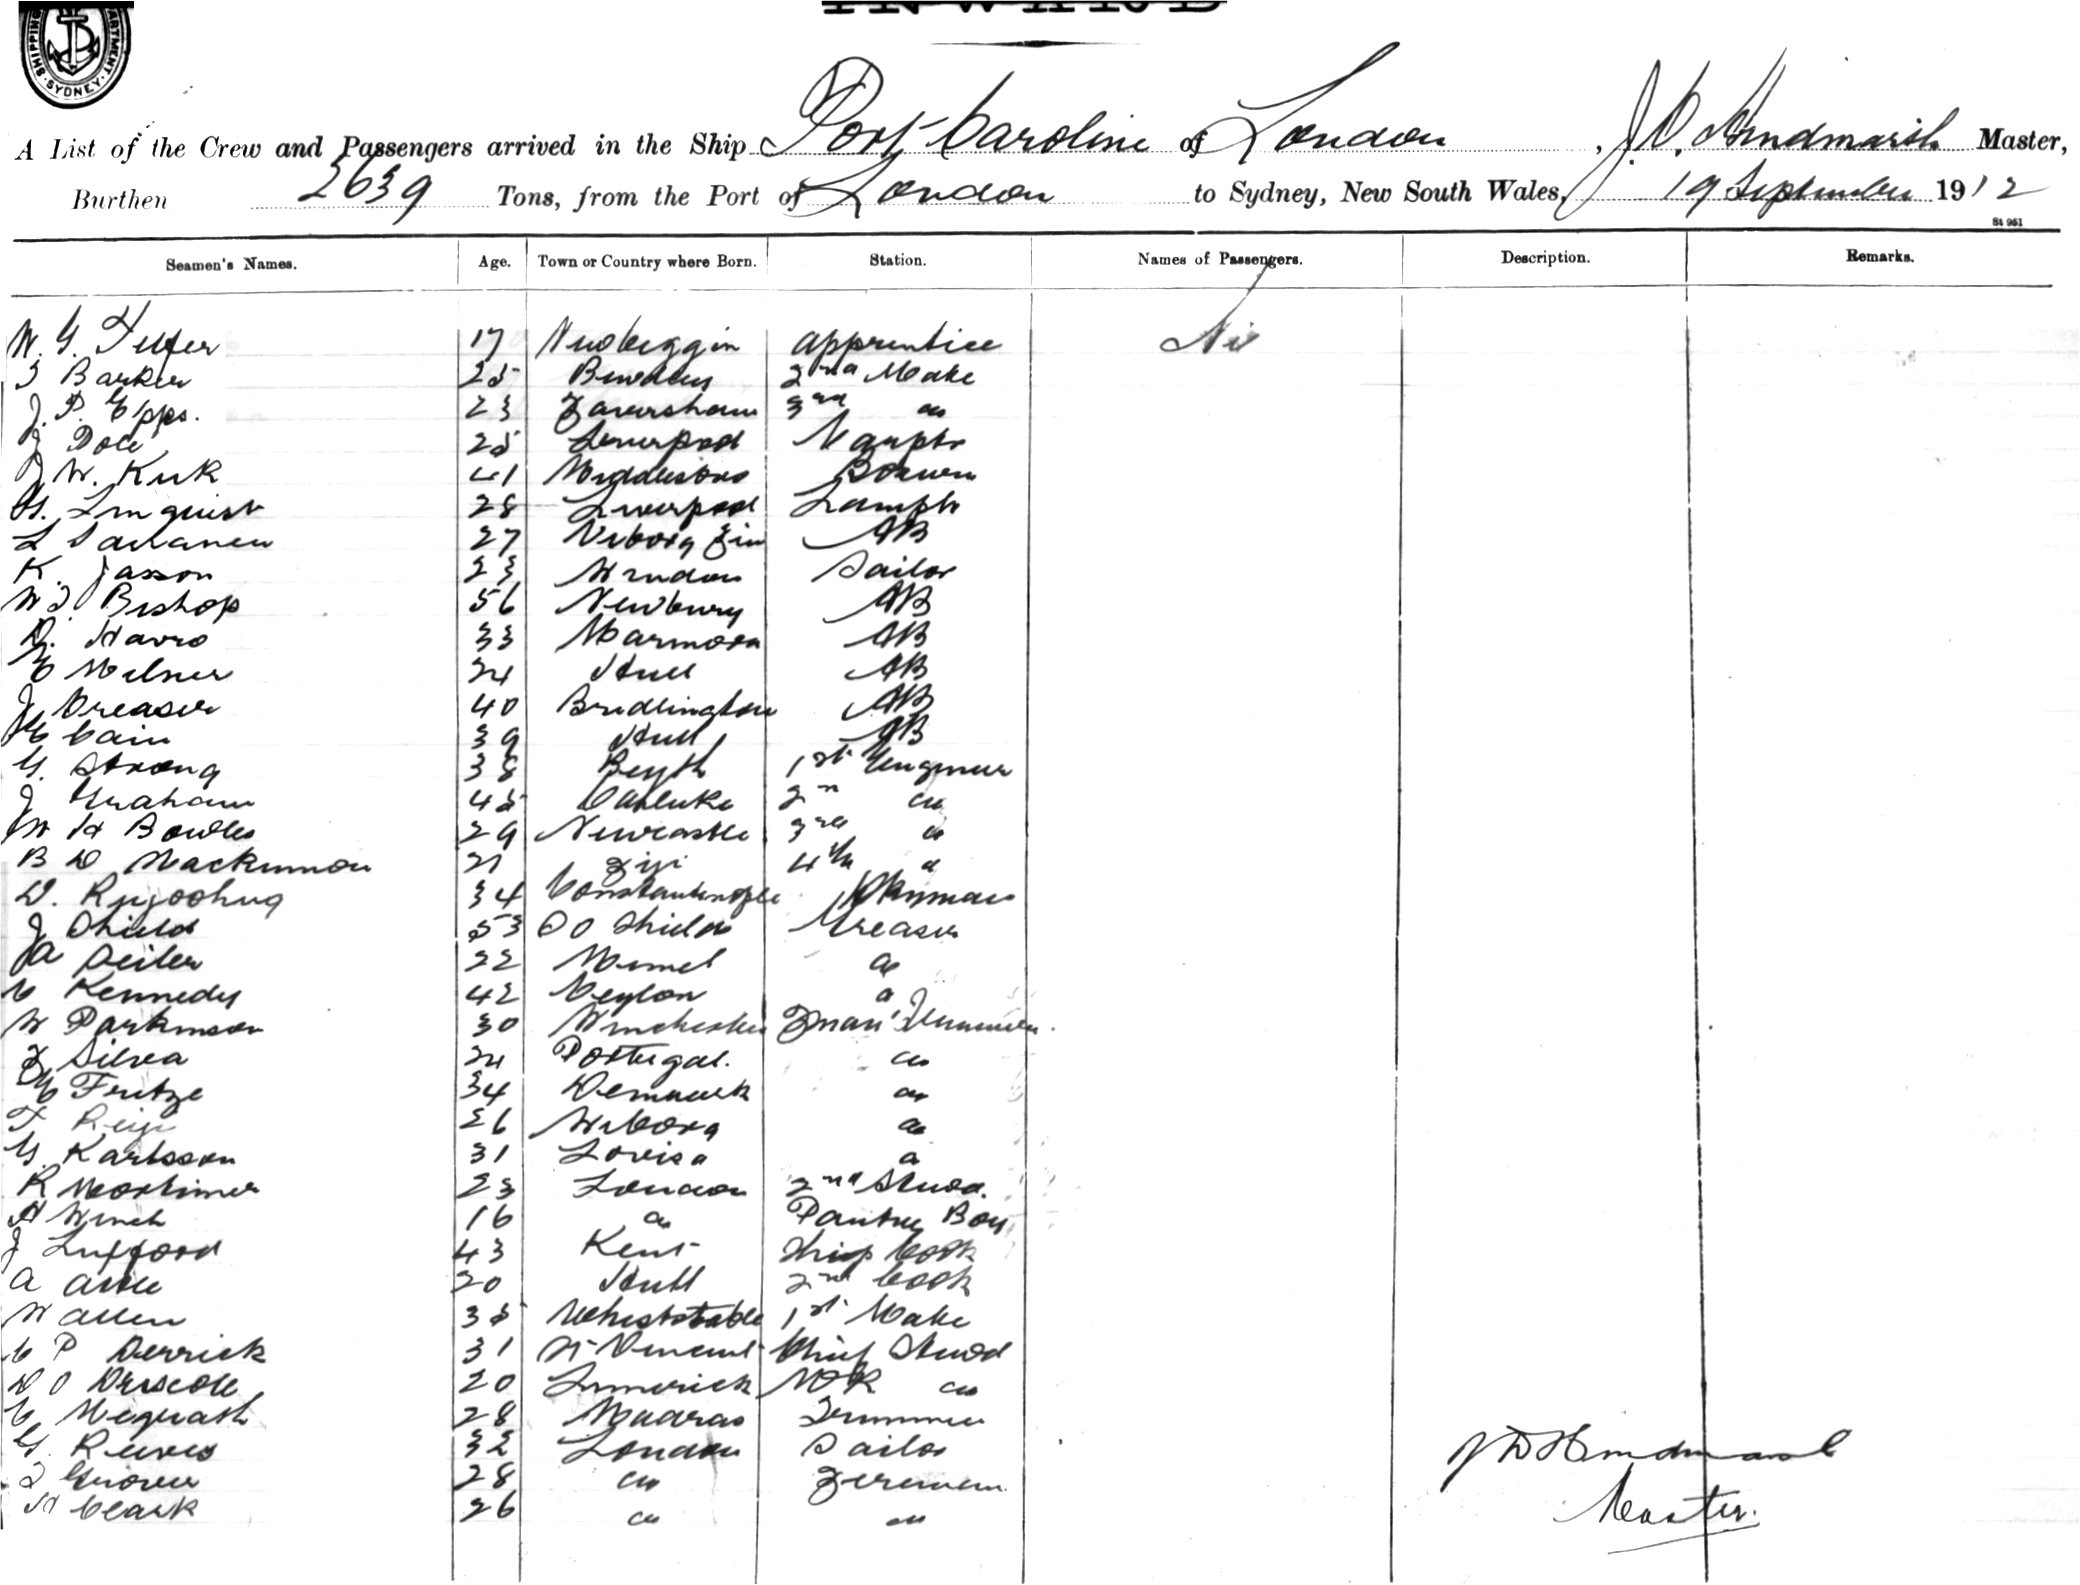 INWARD
SHIPPING DEPARTMENT SYDNEY
A List of the Crew and Passengers arrived in the Ship Port Caroline of London, J. D. Hindmarsh Master,
Burthen 2639 Tons, from the Port of London to Sydney, New South Wales, 19 September 1912
St 951
Seamen's Names. Age. Town or Country where Born. Station. Names of Passengers. Description. Remarks.
W. G. Telfer 17 Newbiggin apprentice Nil
Barker 25 2nd Mate
J. P. Epps. 23 Faversham 3rd do
J Dole 25 Liverpool
J W. Kirk 41 Middlesbro Boswn
G. Linquist 28 Liverpool Lamptr
L 27 Viborg Fin AB
K. Jasson 23 Windau Sailor
W J Bishop 56 Newbury AB
D. Havro 33 AB
E Milner 24 Hull AB
J Creaser 40 Bridlington AB
Cain 39 Hull AB
G. Strong 38 Blyth 1st Engineer
J Graham 45 Carluke 2nd do
W H Bowles 29 Newcastle 3rd do
B D Mackinnon 21 Fiji 4th do
D. 34 Constantinople Dkyman
J Shield 53 So Shields Greaser
A Seiler 22 Memel do
C Kennedy 42 Ceylon do
W Parkinson 30 Winchester Fman Trimmer.
F Silva 24 Portugal. do
Fritze 34 Denmark do
26 Wiborg do
G. Karlsson 31 Lovisa do
R Mortimer 23 London 2nd Stewd.
H Winch 16 do Pantry Boy
J Lufford 43 Kent Ship Cook
A 20 Hull 2nd Cook
W Allen 35 Whitstable 1st Mate
C P Derrick 31 St Vincent Chief Stewd
D O Driscole 20 Limerick MSR do
C Megrath 28 Madras Trimmer
G. Reeves 32 London Sailor
28 do Fireman
H Clark 26 do do
J D Hindmarsh
Master.